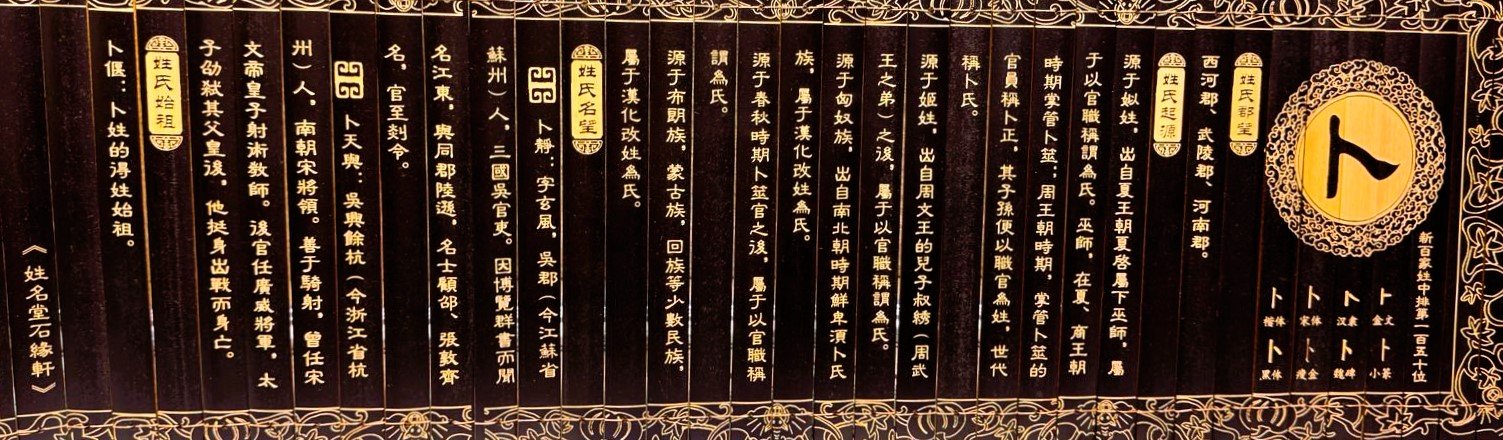 卜
新百家姓中排第一百五十位
卜 卜 卜 卜
金文 汉隶 宋体 楷体
卜 卜 卜 卜
小篆 魏碑 瘦金 黑体
姓氏郡望
西河郡、武陵郡、河南郡。
姓氏起源
源于姒姓，出自夏王朝夏啓屬下巫師，屬
于以官職稱謂為氏。巫師，在夏、商王朝
時期掌管卜筮；周王朝時期，掌管卜筮的
官員稱卜正，其子孫便以職官為姓，世代
稱卜氏。
源于姬姓，出自周文王的兒子叔綉（周武
王之弟）之後，屬于以官職稱謂為氏。
源于匈奴族，出自南北朝時期鮮卑湏卜氏
族，屬于漢化改姓為氏。
源于春秋時期卜筮官之後，屬于以官職稱
謂為氏。
源于布朗族，蒙古族，回族等少數民族，
屬于漢化改姓為氏。
姓氏名望
卜靜：字玄風，吳郡（今江蘇省
蘇州）人，三國吳官吏。因博覽群書而聞
名江東，與同郡陸遜，名士顧邵、張敦齊
名，官至剡令。
卜天與：吳興餘杭（今浙江省杭
州）人，南朝宋將領。善于騎射，曾任宋
文帝皇子射術教師。後官任廣威將軍，太
子劭弒其父皇後，他挺身出戰而身亡。
姓氏始祖
卜偃：卜姓的得姓始祖。
《姓名堂石緣軒》